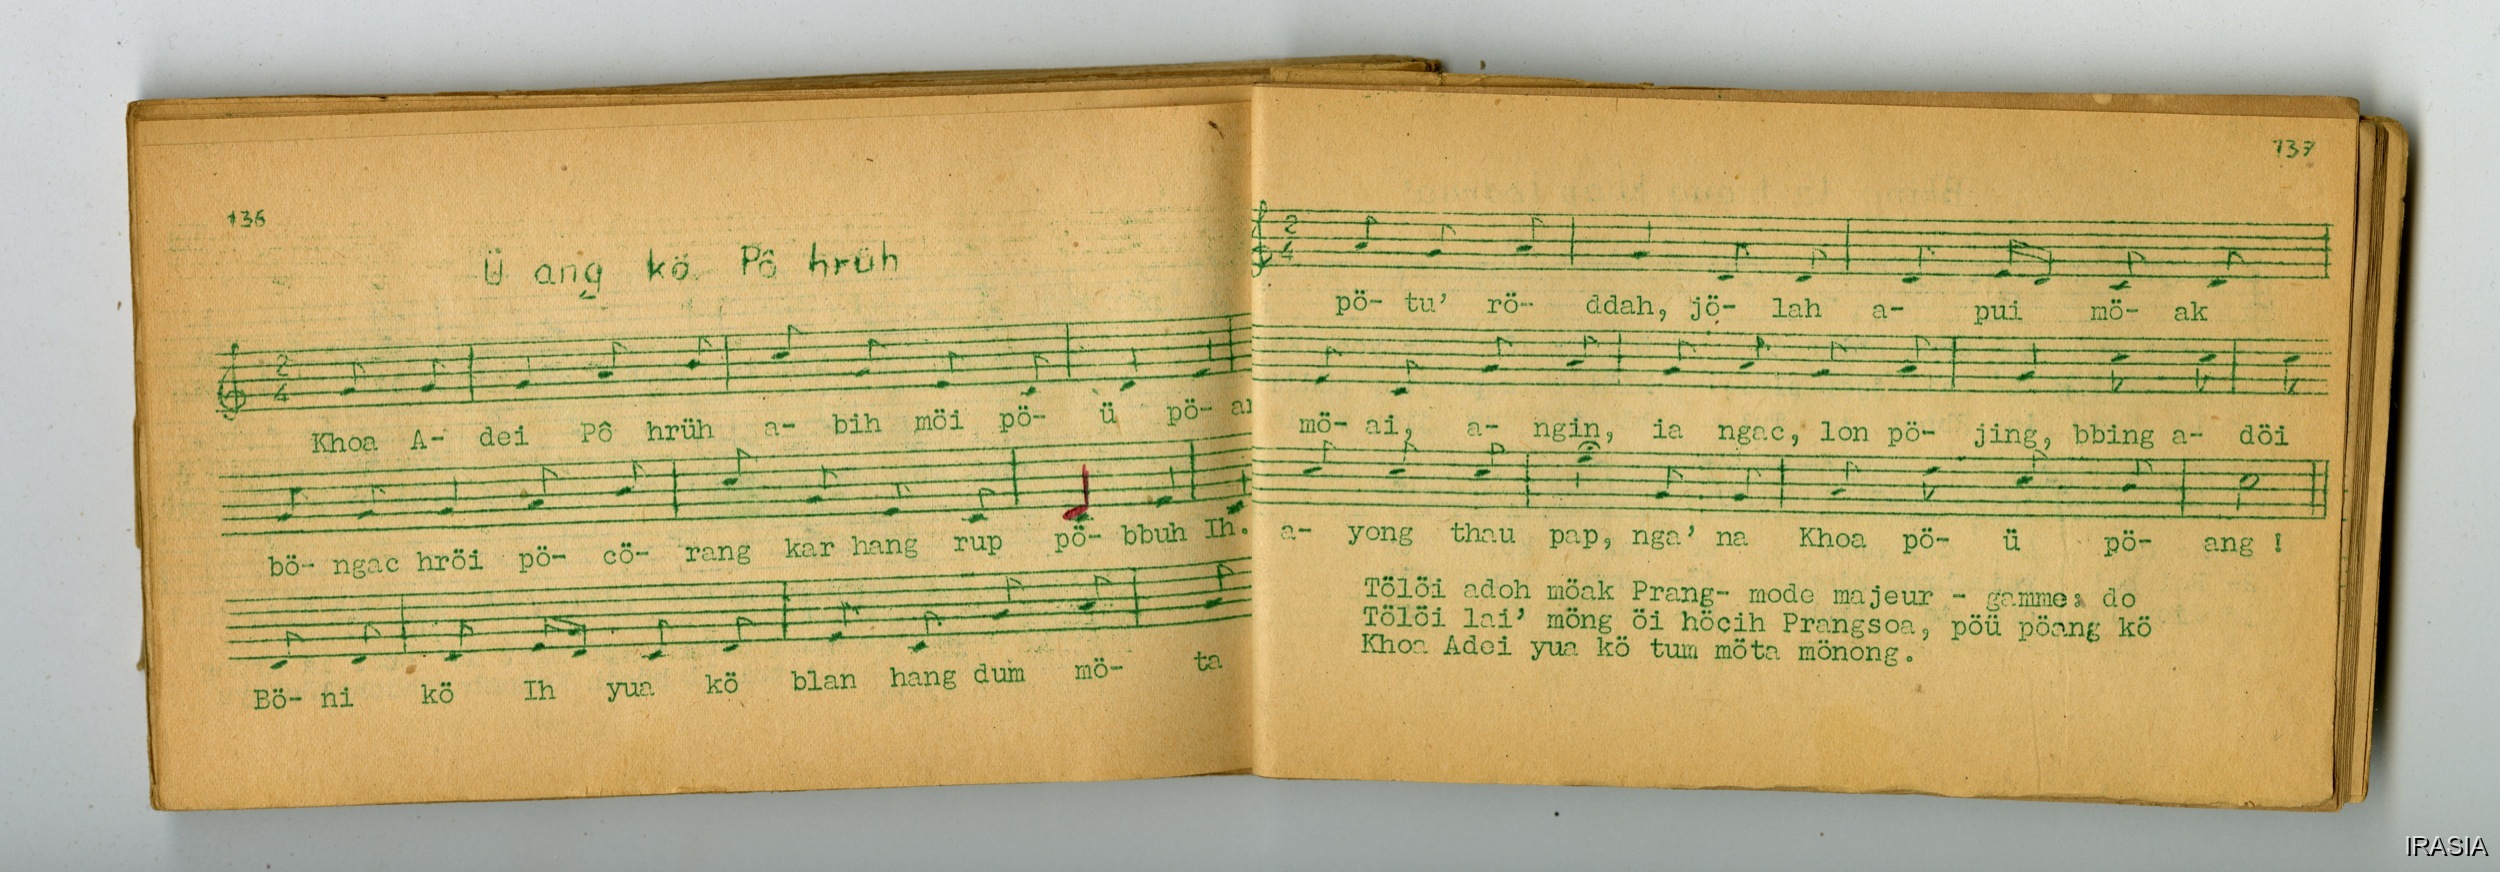 136
Ü ang kö Pô hrüh
2
4
Khoa A- dei Pô hrüh a- bih möi pö- ü pö-
bö- ngac hröi pö- cö- rang kar hang rup pö- bbuh Ih.
Bö- ni kö Ih yua kö blan hang dum mö- ta
137
2
4
pö- tu' rö- ddah, jö- lah a- pui mö- ak
mö- ai, a- ngin, ia ngac, lon pö- jing, bbing a- döi
a- yong thau pap, nga' na Khoa pö- ü pö- ang !
Tölöi adoh möak Prang- mode majeur - gamme: do
Tölöi lai' möng öi höcih Prangsoa, pöü pöang kö
Khoa Adei yua kö tum möta mönong.
IRASIA